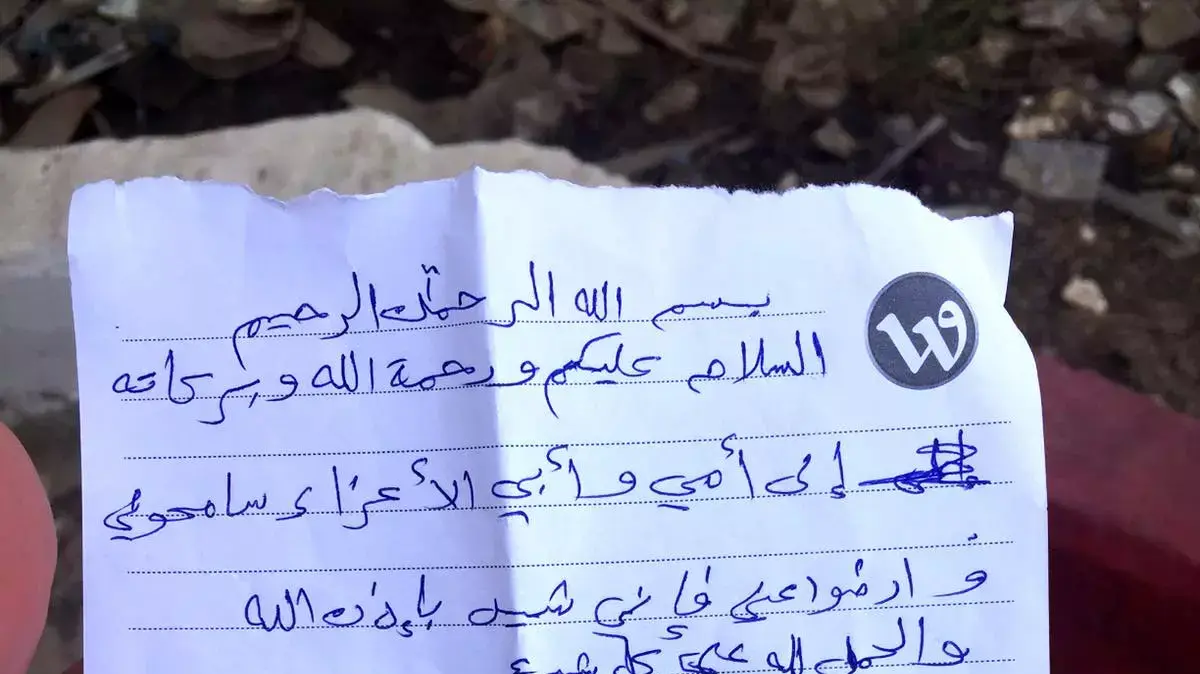 بسم الله الرحمن الرحيم
السلام عليكم ورحمة الله وبركاته
إلى أمي وأبي الأعزاء سامحوني
وارضوا عني فإني شهيد بإذن الله
والحمد لله على كل شيء